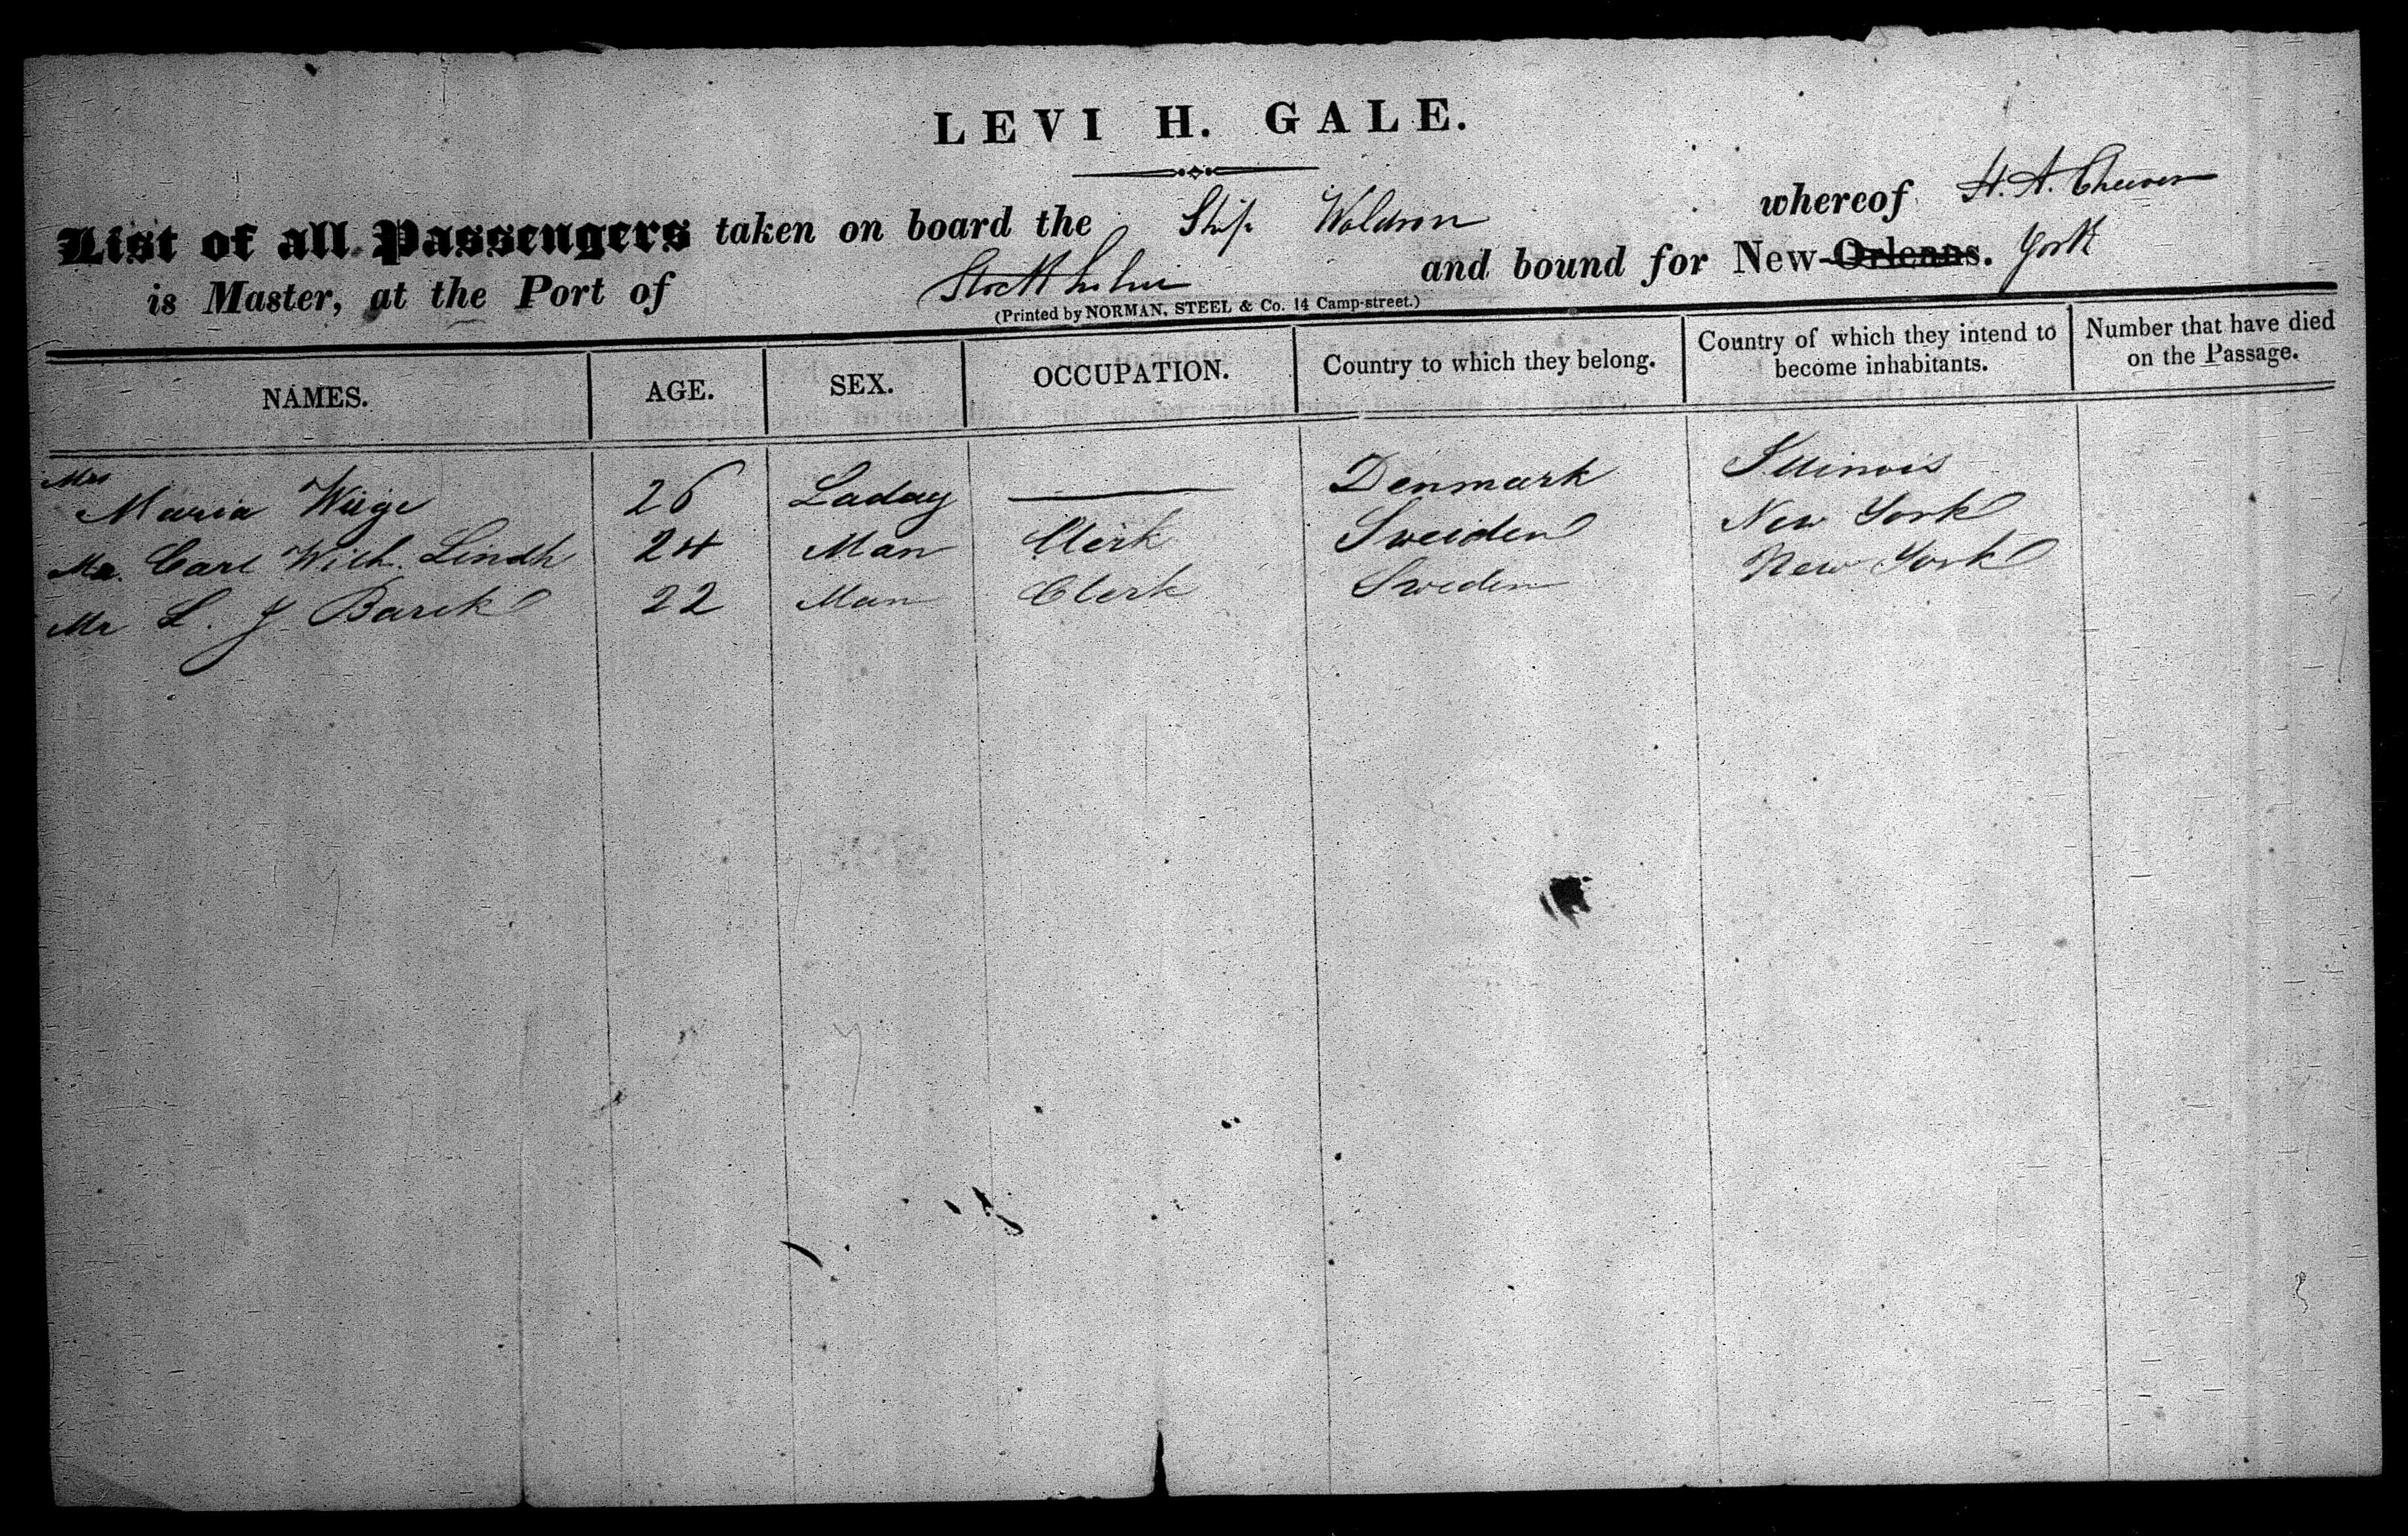 LEVI H. GALE.
List of all Passengers taken on board the Ship Waldron whereof H. A. Cheever
is Master, at the Port of Stockholm and bound for New-Orleans. York
(Printed by NORMAN, STEEL & Co. 14 Camp-street.)
NAMES. AGE. SEX. OCCUPATION. Country to which they belong. Country of which they intend to become inhabitants. Number that have died on the Passage.
Mrs Maria 26 Laday — Denmark Illinois
Mr. Carl Wilh. Lindh 24 Man Clerk Sweiden New York
Mr L. J Barck 22 Man Clerk Sweden New York